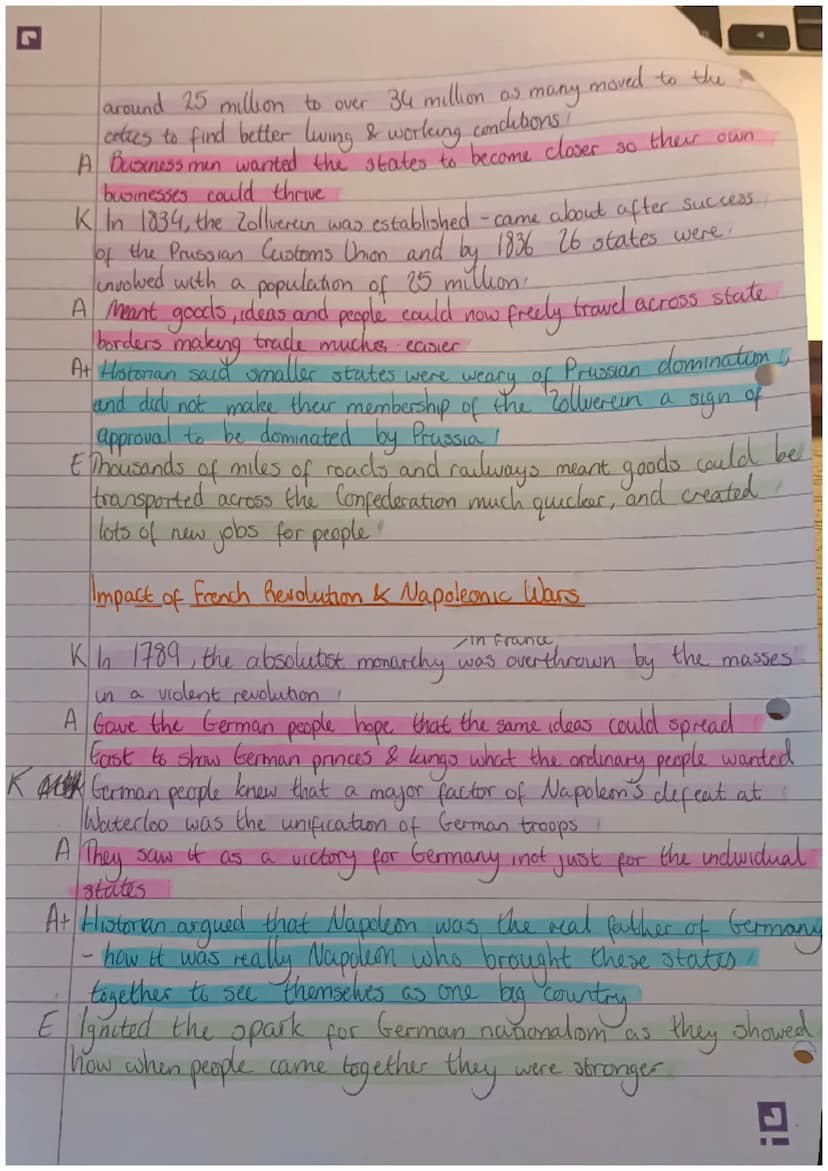 around 25 million to over 34 million as many moved to the
cities to find better living & working conditions
A Businessmen wanted the states to become closer so their own
businesses could thrive
K In 1834, the Zollverein was established - came about after success
of the Prussian Customs Union and by 1836 26 states were
involved with a population of 25 million
A Meant goods, ideas and people could now freely travel across state
borders making trade much easier
A+ Historian said smaller states were weary of Prussian domination
and did not make their membership of the Zollverein a sign of
approval to be dominated by Prussia
E Thousands of miles of roads and railways meant goods could be
transported across the Confederation much quicker, and created
lots of new jobs for people
Impact of French Revolution & Napoleonic Wars
in France
K In 1789, the absolutist monarchy was overthrown by the masses
in a violent revolution
A Gave the German people hope that the same ideas could spread
East to show German princes & kings what the ordinary people wanted
K German people knew that a major factor of Napoleon's defeat at
Waterloo was the unification of German troops
A They saw it as a victory for Germany, not just for the individual
states
A+ Historian argued that Napoleon was the real father of Germany
- how it was really Napoleon who brought these states
together to see themselves as one big country
E Ignited the spark for German nationalism as they showed
how when people came together they were stronger